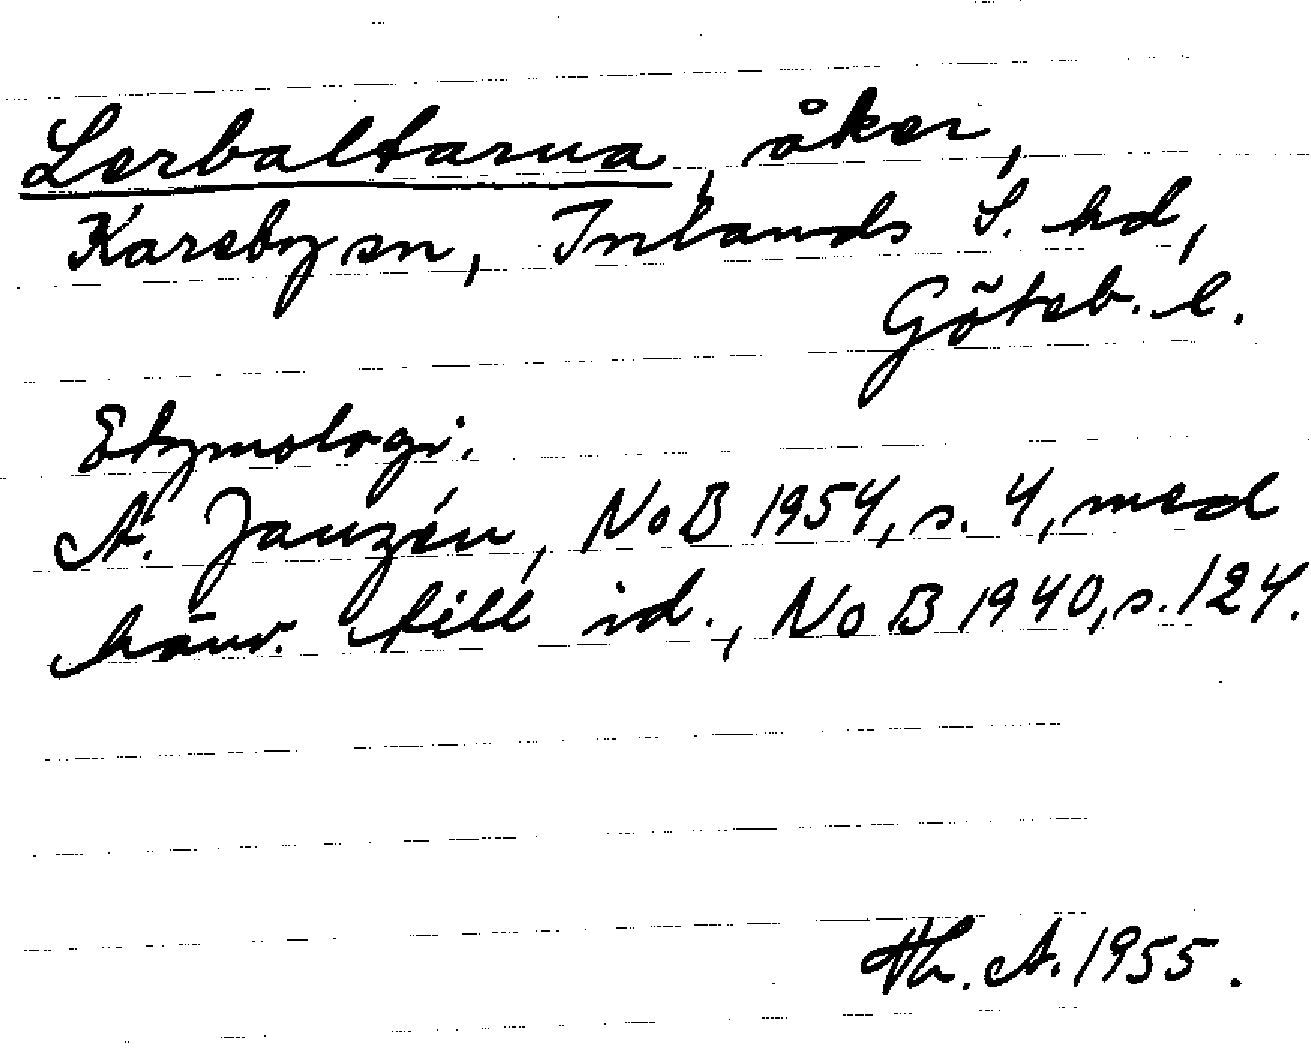 Lerbaltarna, åker,
Kareby sn, Inlands S. hd,
Göteb. l.
Etymologi.
A. Janzén, NoB 1954, s. 4, med
hänv. till id., NoB 1940, s. 124.
Th. A. 1955.